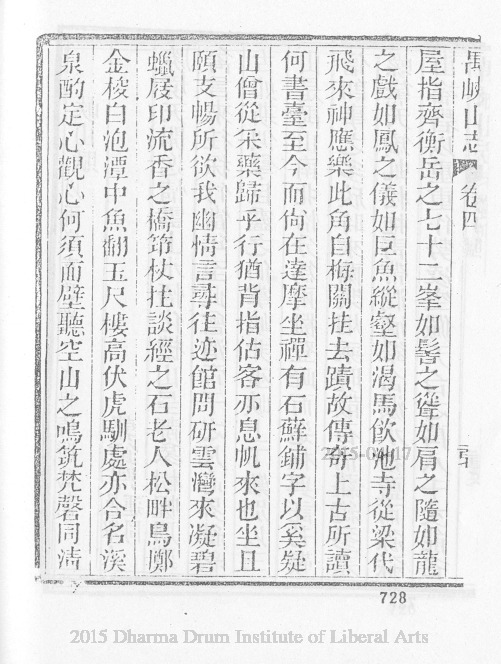 禺峽山志 卷四
屋指齊衡岳之七十二峯如髻之聳如肩之隨如龍
之戲如鳳之儀如巨魚縱壑如渴馬飲池寺從梁代
飛來神應樂此角自梅關挂去蹟故傳奇上古所讀
何書臺至今而尙在達摩坐禪有石蘚鋪字以奚疑
山僧從采藥歸乎行猶背指估客亦息帆來也坐且
頤支暢所欲我幽情言尋往迹館問研雲灣來凝碧
蠟屐印流香之橋笻杖拄談經之石老人松畔鳥鄭
金梭白泡潭中魚翻玉尺樓高伏虎馴處亦合名溪
泉酌定心觀心何須面壁聽空山之鳴筑梵磬同淸
728
2015 Dharma Drum Institute of Liberal Arts